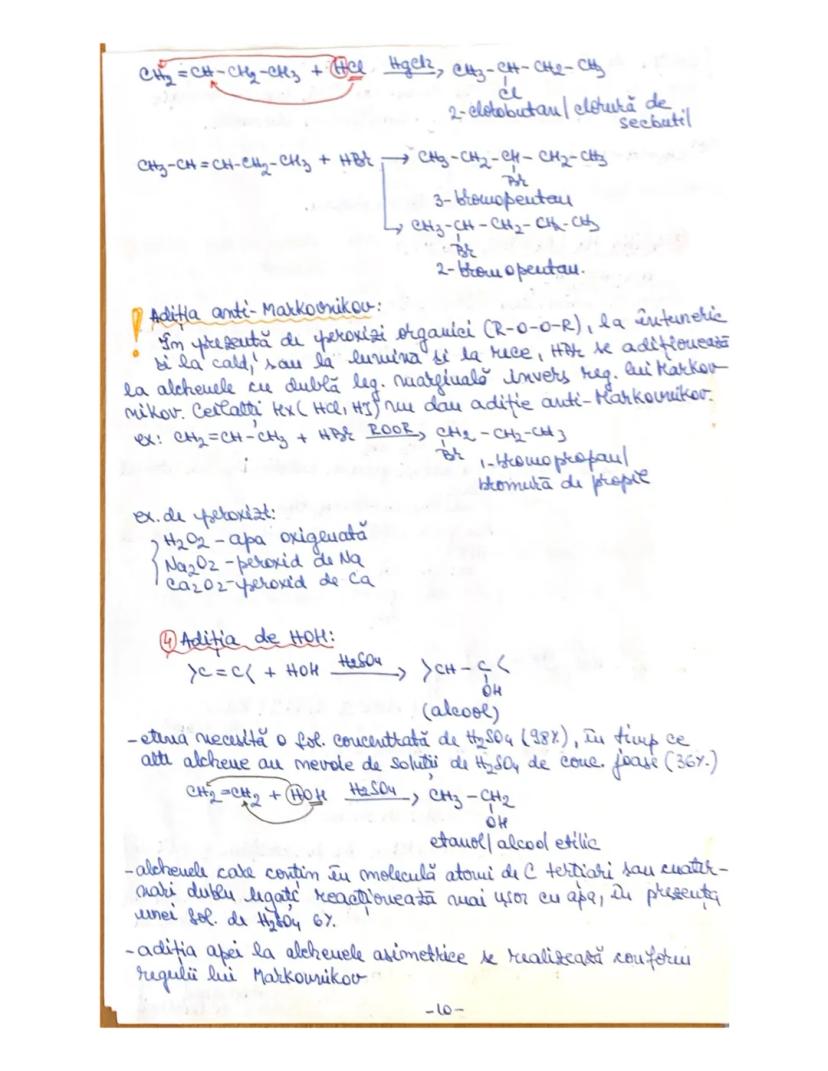 CH2=CH-CH2-CH3 + HCl HgCl2 CH3-CH-CH2-CH3
Cl
2-clorobutan/ clorură de
secbutil
CH3-CH=CH-CH2-CH3 + HBr → CH3-CH2-CH-CH2-CH3
Br
3-bromopentan
↳ CH3-CH-CH2-CH2-CH3
Br
2-bromopentan.
! Adiția anti-Markovnikov:
În prezență de peroxizi organici (R-O-O-R), la întuneric
și la cald, sau la lumină și la rece, HBr se adiționează
la alchenele cu dublă leg. marginală invers reg. lui Markov-
nikov. Ceilalți HX (HCl, HI) nu dau adiție anti-Markovnikov.
ex: CH2=CH-CH3 + HBr ROOR→ CH2-CH2-CH3
Br 1-bromopropan/
bromură de propil
ex. de peroxizi:
H2O2 - apa oxigenată
Na2O2 - peroxid de Na
Ca2O2 - peroxid de Ca
④ Adiția de HOH:
>C=C< + HOH H2SO4→ >CH-C<
OH
(alcool)
- etena necesită o sol. concentrată de H2SO4 (98%), în timp ce
alte alchene au nevoie de soluții de H2SO4 de conc. joase (36%.)
CH2=CH2 + HOH H2SO4→ CH3-CH2
OH
etanol/ alcool etilic
- alchenele care conțin în moleculă atomi de C terțiari sau cuater-
nari dublu legați reacționează mai ușor cu apa, în prezența
unei sol. de H2SO4 6%.
- adiția apei la alchenele asimetrice se realizează conform
regulii lui Markovnikov
-10-